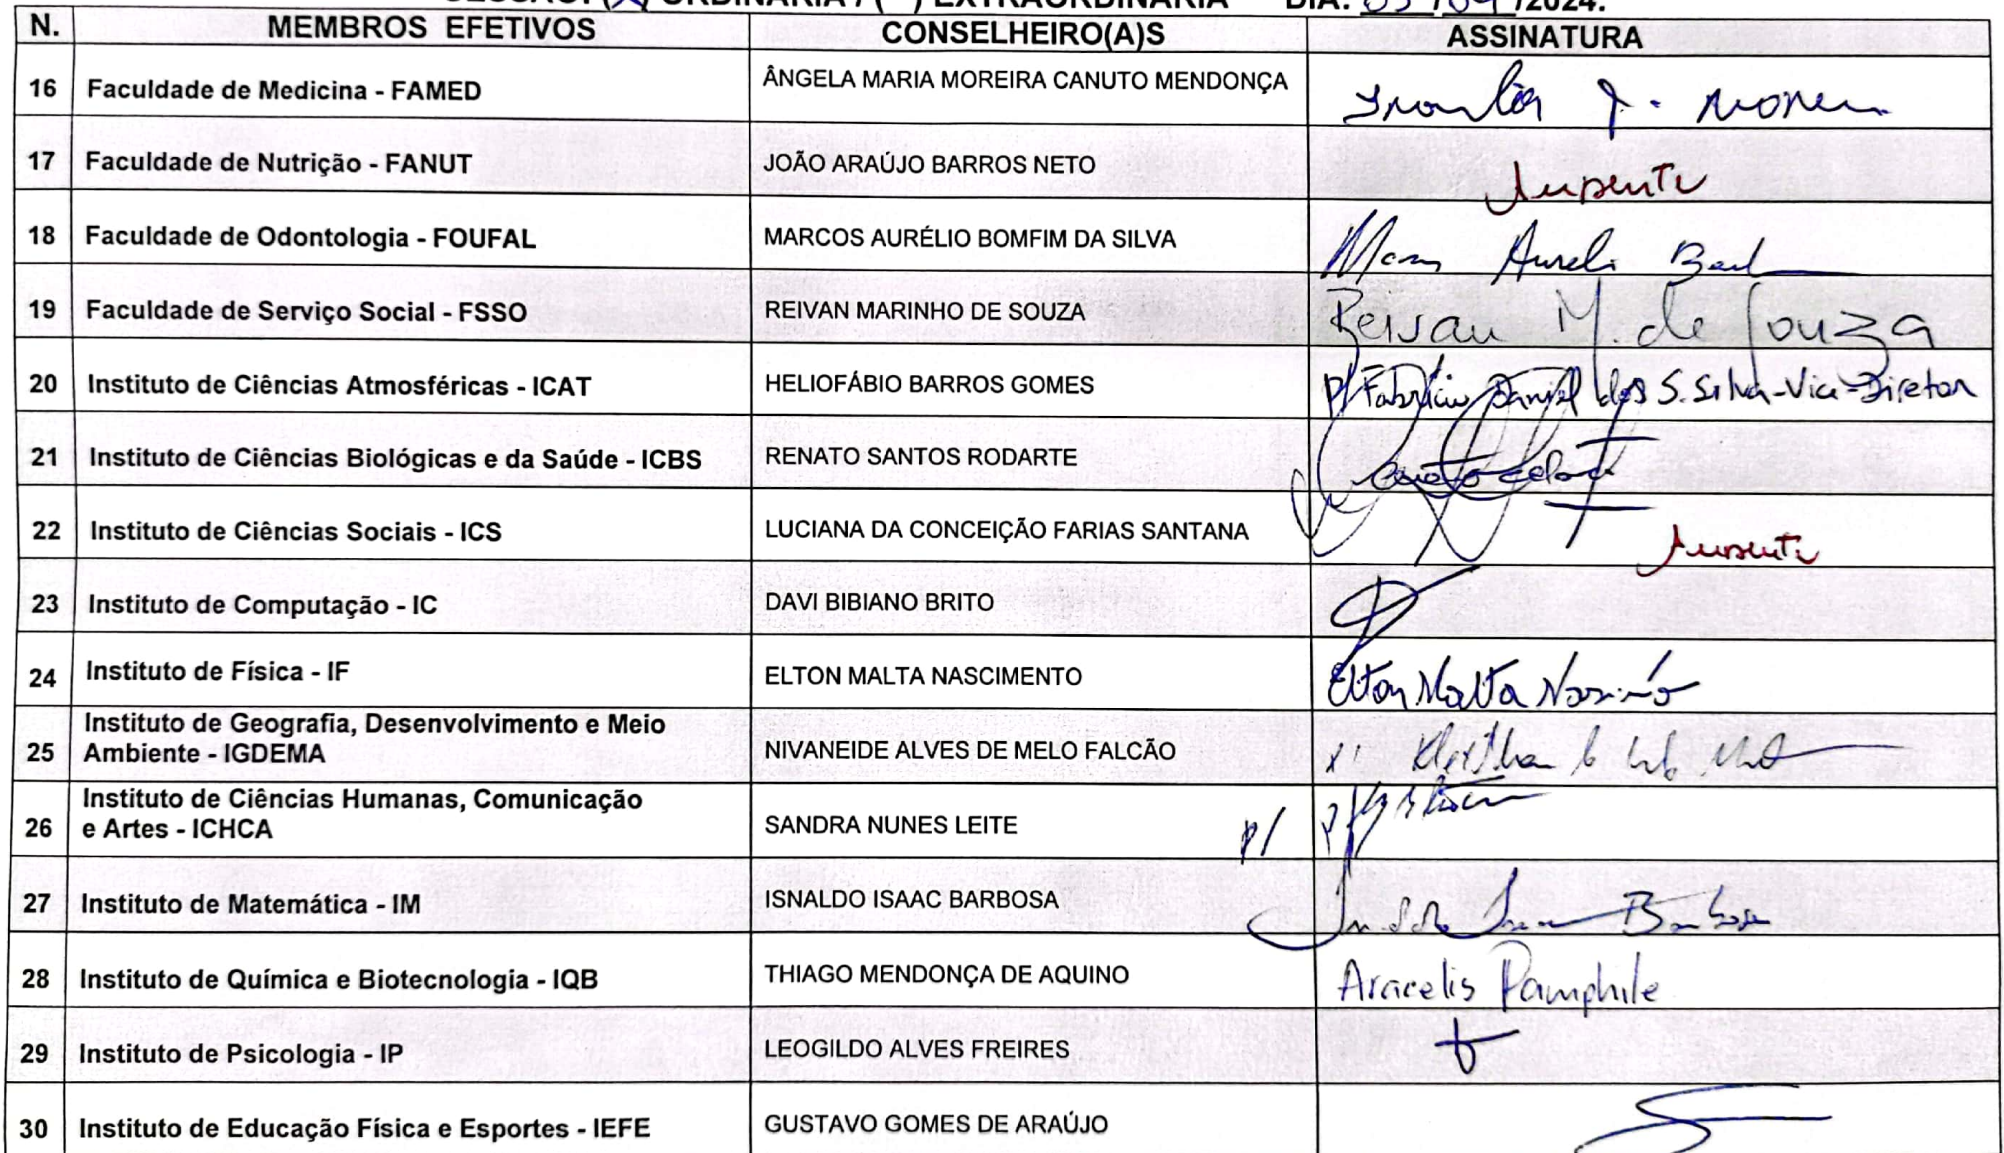 SESSÃO: (X) ORDINÁRIA / ( ) EXTRAORDINÁRIA DIA: /2024.
N. MEMBROS EFETIVOS CONSELHEIRO(A)S ASSINATURA
16 Faculdade de Medicina - FAMED ÂNGELA MARIA MOREIRA CANUTO MENDONÇA
17 Faculdade de Nutrição - FANUT JOÃO ARAÚJO BARROS NETO Ausente
18 Faculdade de Odontologia - FOUFAL MARCOS AURÉLIO BOMFIM DA SILVA
19 Faculdade de Serviço Social - FSSO REIVAN MARINHO DE SOUZA Reivan M. de Souza
20 Instituto de Ciências Atmosféricas - ICAT HELIOFÁBIO BARROS GOMES p/ Fabrício Daniel dos S. Silva-Vice-Diretor
21 Instituto de Ciências Biológicas e da Saúde - ICBS RENATO SANTOS RODARTE
22 Instituto de Ciências Sociais - ICS LUCIANA DA CONCEIÇÃO FARIAS SANTANA Ausente
23 Instituto de Computação - IC DAVI BIBIANO BRITO
24 Instituto de Física - IF ELTON MALTA NASCIMENTO Elton Malta
Instituto de Geografia, Desenvolvimento e Meio
25 Ambiente - IGDEMA NIVANEIDE ALVES DE MELO FALCÃO
Instituto de Ciências Humanas, Comunicação
26 e Artes - ICHCA SANDRA NUNES LEITE p/
27 Instituto de Matemática - IM ISNALDO ISAAC BARBOSA
28 Instituto de Química e Biotecnologia - IQB THIAGO MENDONÇA DE AQUINO Aracelis Pamphile
29 Instituto de Psicologia - IP LEOGILDO ALVES FREIRES
30 Instituto de Educação Física e Esportes - IEFE GUSTAVO GOMES DE ARAÚJO